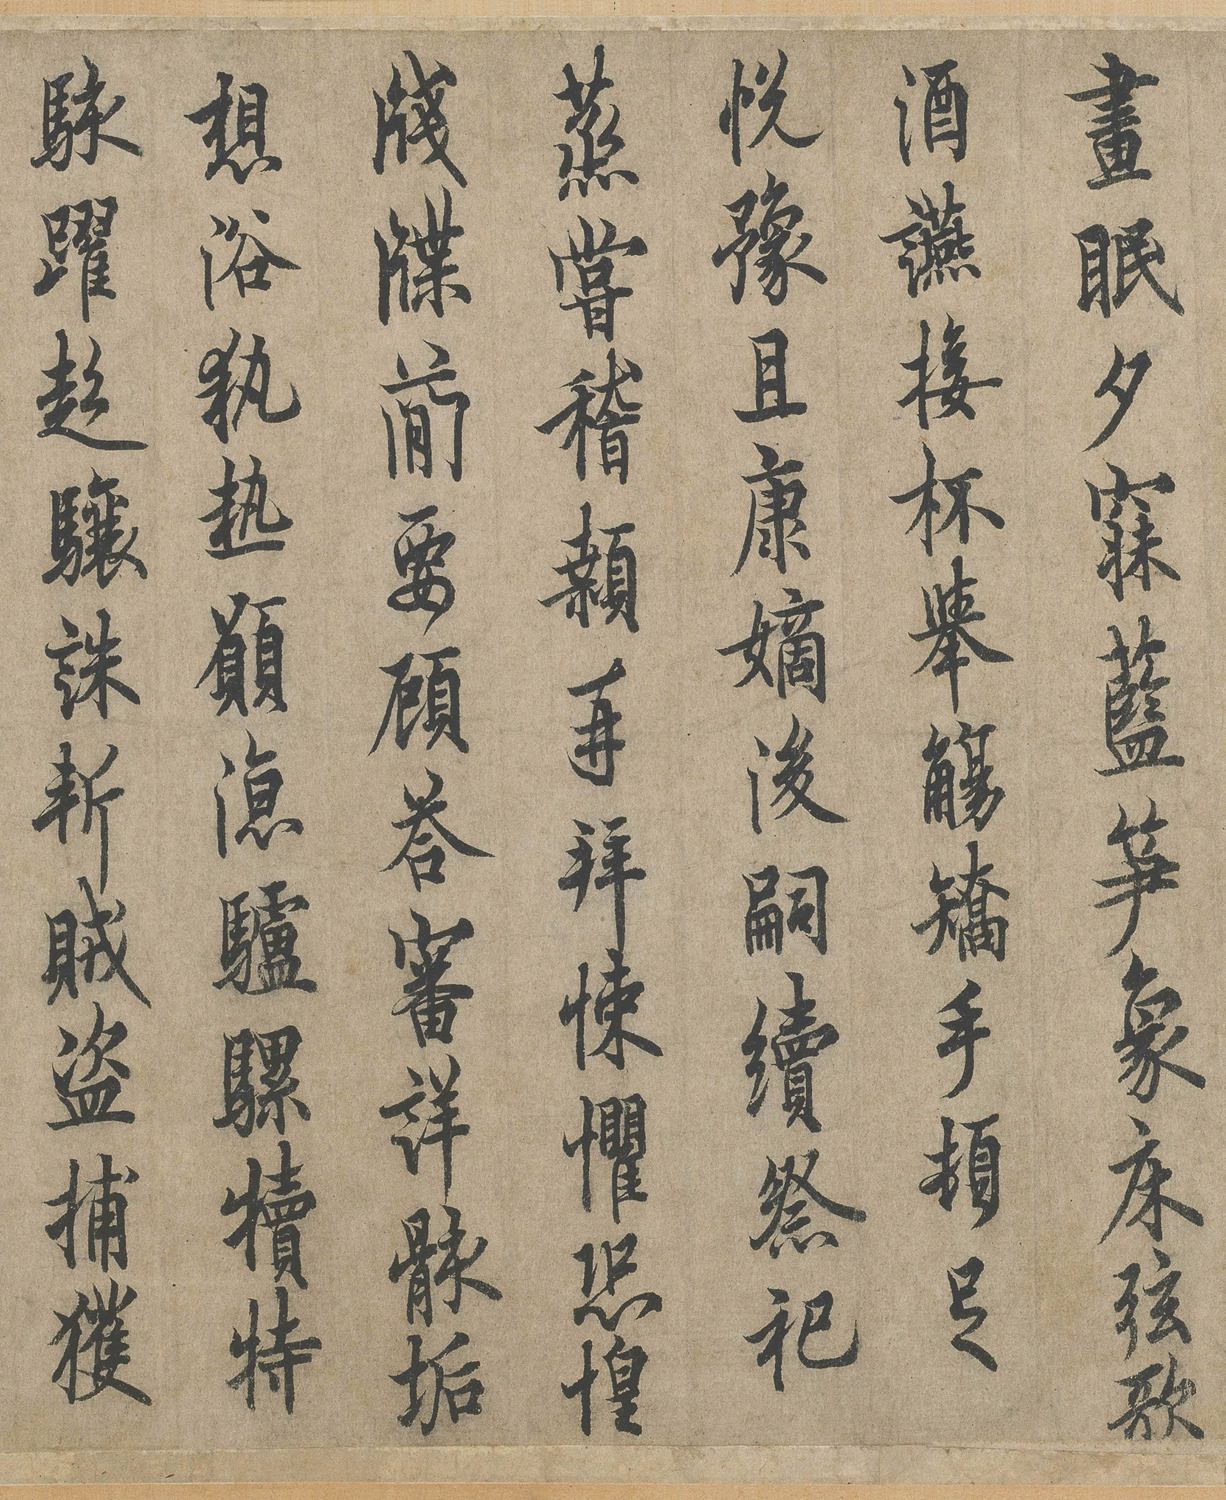 晝眠夕寐藍笋象床弦歌
酒讌接杯舉觴矯手頓足
悅豫且康嫡後嗣續祭祀
蒸嘗稽顙再拜悚懼恐惶
牋牒簡要顧荅審詳骸垢
想浴執熱願涼驢騾犢特
駭躍超驤誅斬賊盜捕獲